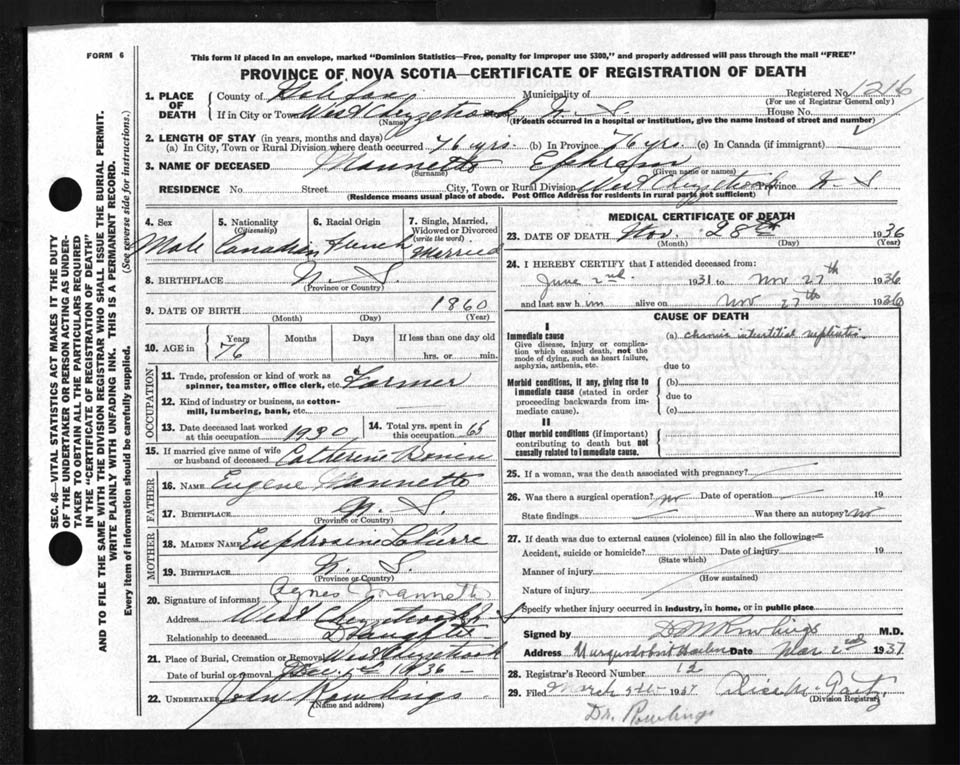 FORM 6
This form if placed in an envelope, marked "Dominion Statistics—Free, penalty for improper use $300," and properly addressed will pass through the mail "FREE"
PROVINCE OF NOVA SCOTIA—CERTIFICATE OF REGISTRATION OF DEATH
1. PLACE OF DEATH
County of Halifax Municipality of Registered No. 1216
(For use of Registrar General only)
If in City or Town West Chezzetcook, N. S. House No.
(Name) (If death occurred in a hospital or institution, give the name instead of street and number)
2. LENGTH OF STAY (in years, months and days)
(a) In City, Town or Rural Division where death occurred 76 yrs. (b) In Province 76 yrs. (c) In Canada (if immigrant)
3. NAME OF DECEASED Mannette Ephraim
(Surname) (Given name or names)
RESIDENCE No. Street City, Town or Rural Division West Chezzetcook Province N. S.
(Residence means usual place of abode. Post Office Address for residents in rural parts not sufficient)
4. Sex
Male
5. Nationality
(Citizenship)
Canadian
6. Racial Origin
French
7. Single, Married, Widowed or Divorced
(write the word)
Married
8. BIRTHPLACE N. S.
(Province or Country)
9. DATE OF BIRTH 1860
(Month) (Day) (Year)
10. AGE in Years Months Days If less than one day old
76 hrs. or min.
OCCUPATION
11. Trade, profession or kind of work as
spinner, teamster, office clerk, etc. Farmer
12. Kind of industry or business, as cotton-
mill, lumbering, bank, etc.
13. Date deceased last worked
at this occupation 1930
14. Total yrs. spent in
this occupation 65
15. If married give name of wife
or husband of deceased Catherine
FATHER
16. NAME Eugene Mannette
17. BIRTHPLACE N. S.
(Province or Country)
MOTHER
18. MAIDEN NAME Euphrosine LaPierre
19. BIRTHPLACE N. S.
(Province or Country)
20. Signature of informant Agnes Mannette
Address West Chezzetcook
Relationship to deceased Daughter
21. Place of Burial, Cremation or Removal West Chezzetcook
Date of burial or removal Dec. 1936
22. UNDERTAKER John Rawlings
(Name and address)
MEDICAL CERTIFICATE OF DEATH
23. DATE OF DEATH Nov. 28th 1936
(Month) (Day) (Year)
24. I HEREBY CERTIFY that I attended deceased from:
June 2nd 1931 to Nov 27th 1936
and last saw him alive on Nov 27th 1936
CAUSE OF DEATH
I
Immediate cause
Give disease, injury or complica-
tion which caused death, not the
mode of dying, such as heart failure,
asphyxia, asthenia, etc.
(a) chronic interstitial nephritis
due to
Morbid conditions, if any, giving rise to
immediate cause (stated in order
proceeding backwards from im-
mediate cause).
(b)
due to
(c)
II
Other morbid conditions (if important)
contributing to death but not
causally related to immediate cause.
25. If a woman, was the death associated with pregnancy?
26. Was there a surgical operation? no Date of operation 19
State findings Was there an autopsy no
27. If death was due to external causes (violence) fill in also the following:—
Accident, suicide or homicide? Date of injury 19
(State which)
Manner of injury
(How sustained)
Nature of injury
Specify whether injury occurred in industry, in home, or in public place
Signed by D M Rowlings M.D.
Address Musquodoboit Harbour Date Mar 2nd 1937
28. Registrar's Record Number 12
29. Filed March 5th 1937
(Division Registrar)
Dr. Rowlings
SEC. 46—VITAL STATISTICS ACT MAKES IT THE DUTY
OF THE UNDERTAKER OR PERSON ACTING AS UNDER-
TAKER TO OBTAIN ALL THE PARTICULARS REQUIRED
IN THE "CERTIFICATE OF REGISTRATION OF DEATH"
AND TO FILE THE SAME WITH THE DIVISION REGISTRAR WHO SHALL ISSUE THE BURIAL PERMIT.
WRITE PLAINLY WITH UNFADING INK. THIS IS A PERMANENT RECORD.
Every item of information should be carefully supplied. (See reverse side for instructions.)